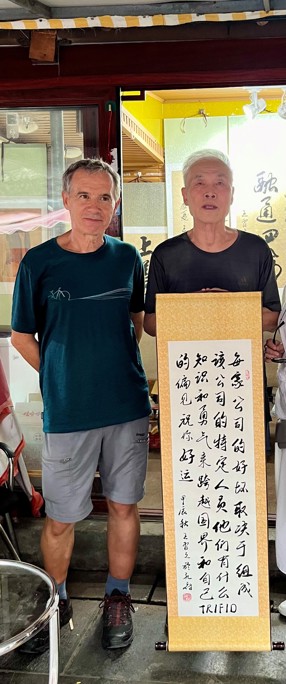 每家公司的好坏取决于组成
该公司的特定人员他们有什么
知识和勇气来跨越国界和自己
的偏见祝你好运
甲辰秋
TRIFID
融通
上